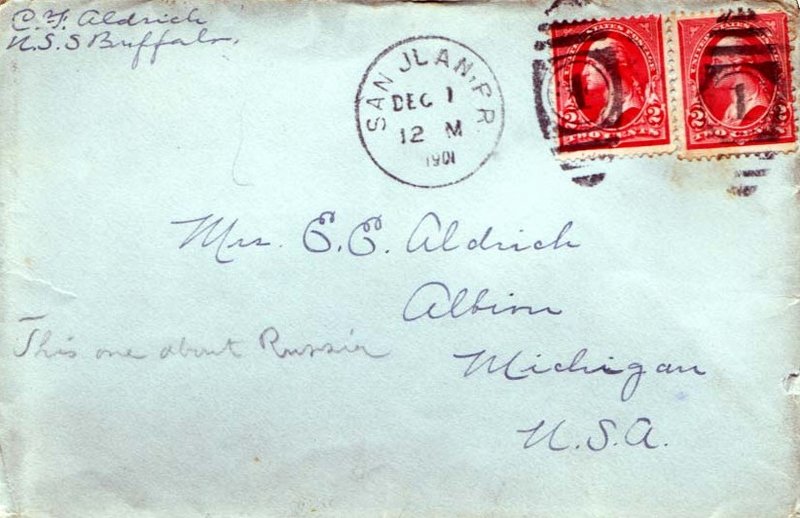 C. F. Aldrich
U.S.S Buffalo.
SAN JUAN, P.R.
DEC 1
12 M
1901
UNITED STATES POSTAGE
2 2
TWO CENTS
1
UNITED STATES
2 2
TWO CENTS
1
Mrs. E. E. Aldrich
Albion
Michigan
U.S.A.
This one about Russia